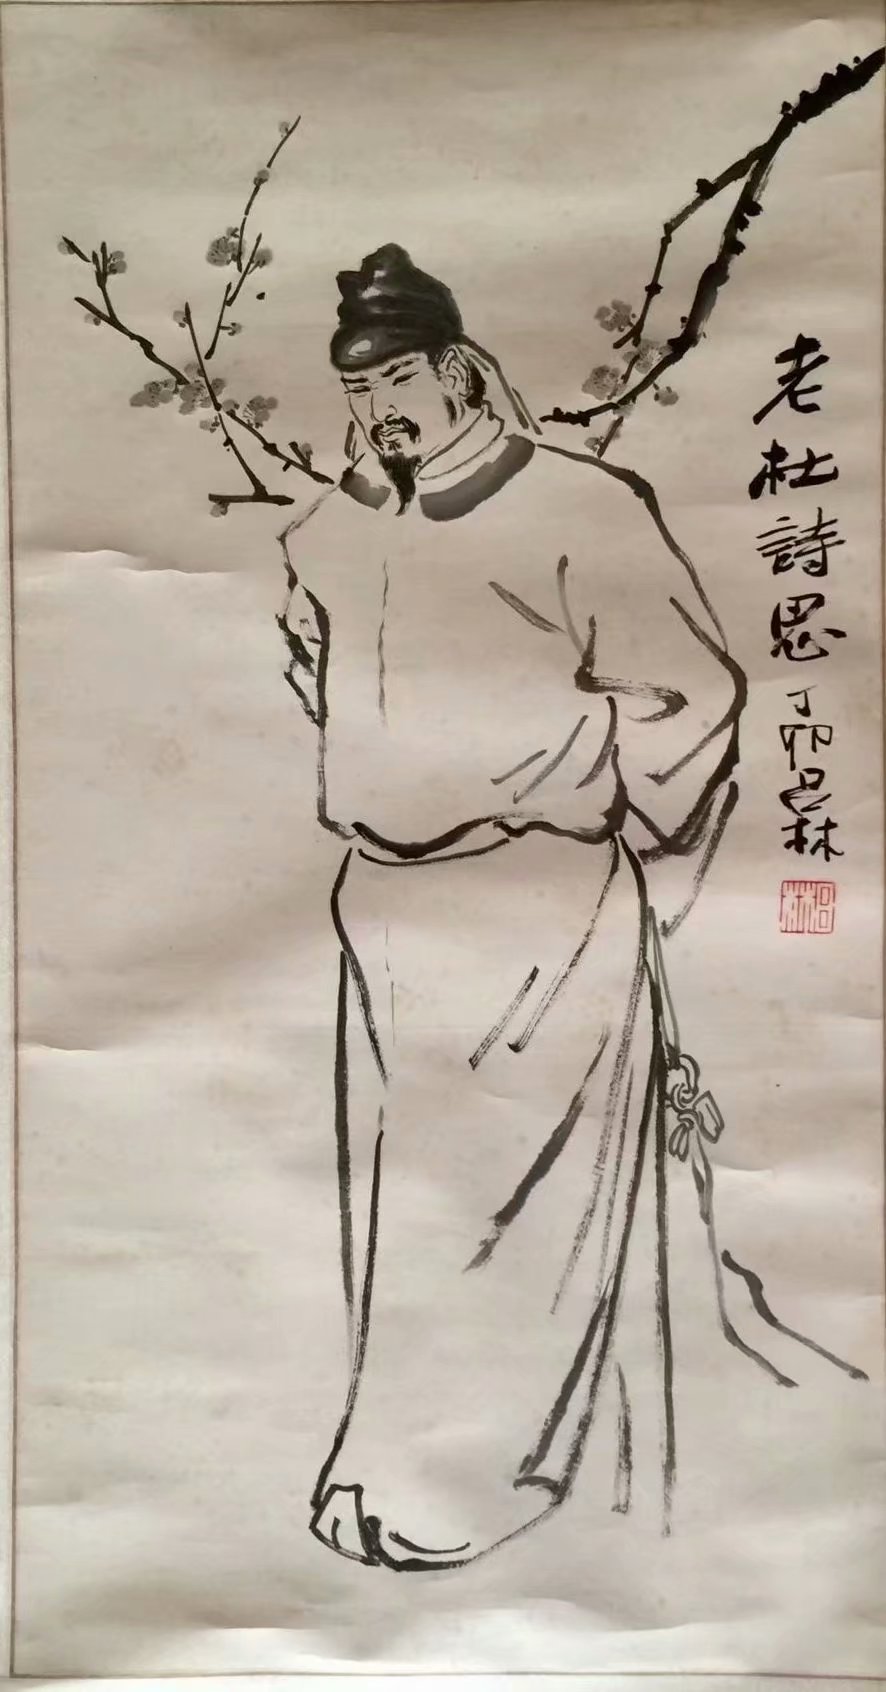 老杜詩思 丁卯吕林